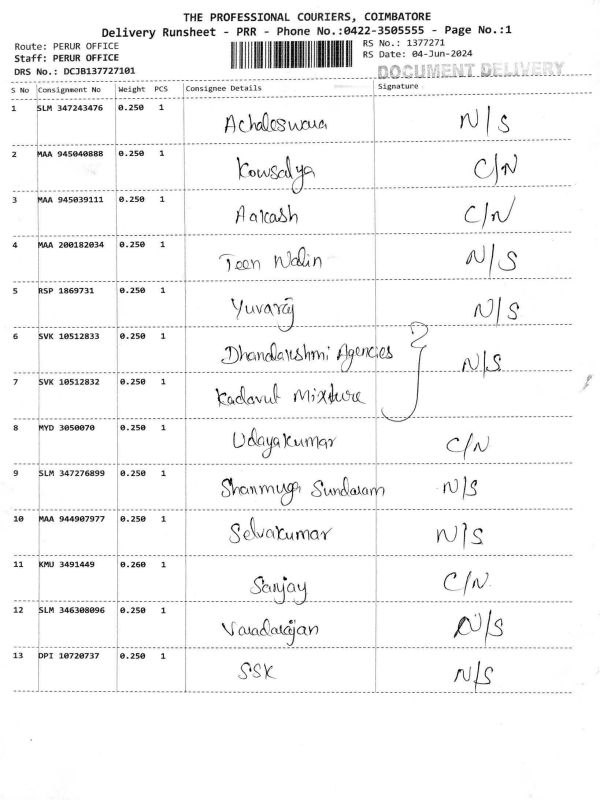 THE PROFESSIONAL COURIERS, COIMBATORE
Delivery Runsheet - PRR - Phone No.:0422-3505555 - Page No.:1
Route: PERUR OFFICE
Staff: PERUR OFFICE
DRS No.: DCJB137727101
RS No.: 1377271
RS Date: 04-Jun-2024
DOCUMENT DELIVERY
S No Consignment No Weight PCS Consignee Details Signature
1 SLM 347243476 0.250 1 Achaleswara N/S
2 MAA 945040888 0.250 1 Kowsalya C/N
3 MAA 945039111 0.250 1 Aakash C/N
4 MAA 200182034 0.250 1 Teen Walin N/S
5 RSP 1869731 0.250 1 Yuvaraj N/S
6 SVK 10512833 0.250 1 Dhandalakshmi Agencies N/S
7 SVK 10512832 0.250 1 Kadavut Mixture
8 MYD 3050070 0.250 1 Udayakumar C/N
9 SLM 347276899 0.250 1 Shanmuga Sundaram N/S
10 MAA 944907977 0.250 1 Selvakumar N/S
11 KMU 3491449 0.260 1 Sanjay C/N.
12 SLM 346308096 0.250 1 Varadarajan N/S
13 DPI 10720737 0.250 1 SSK N/S